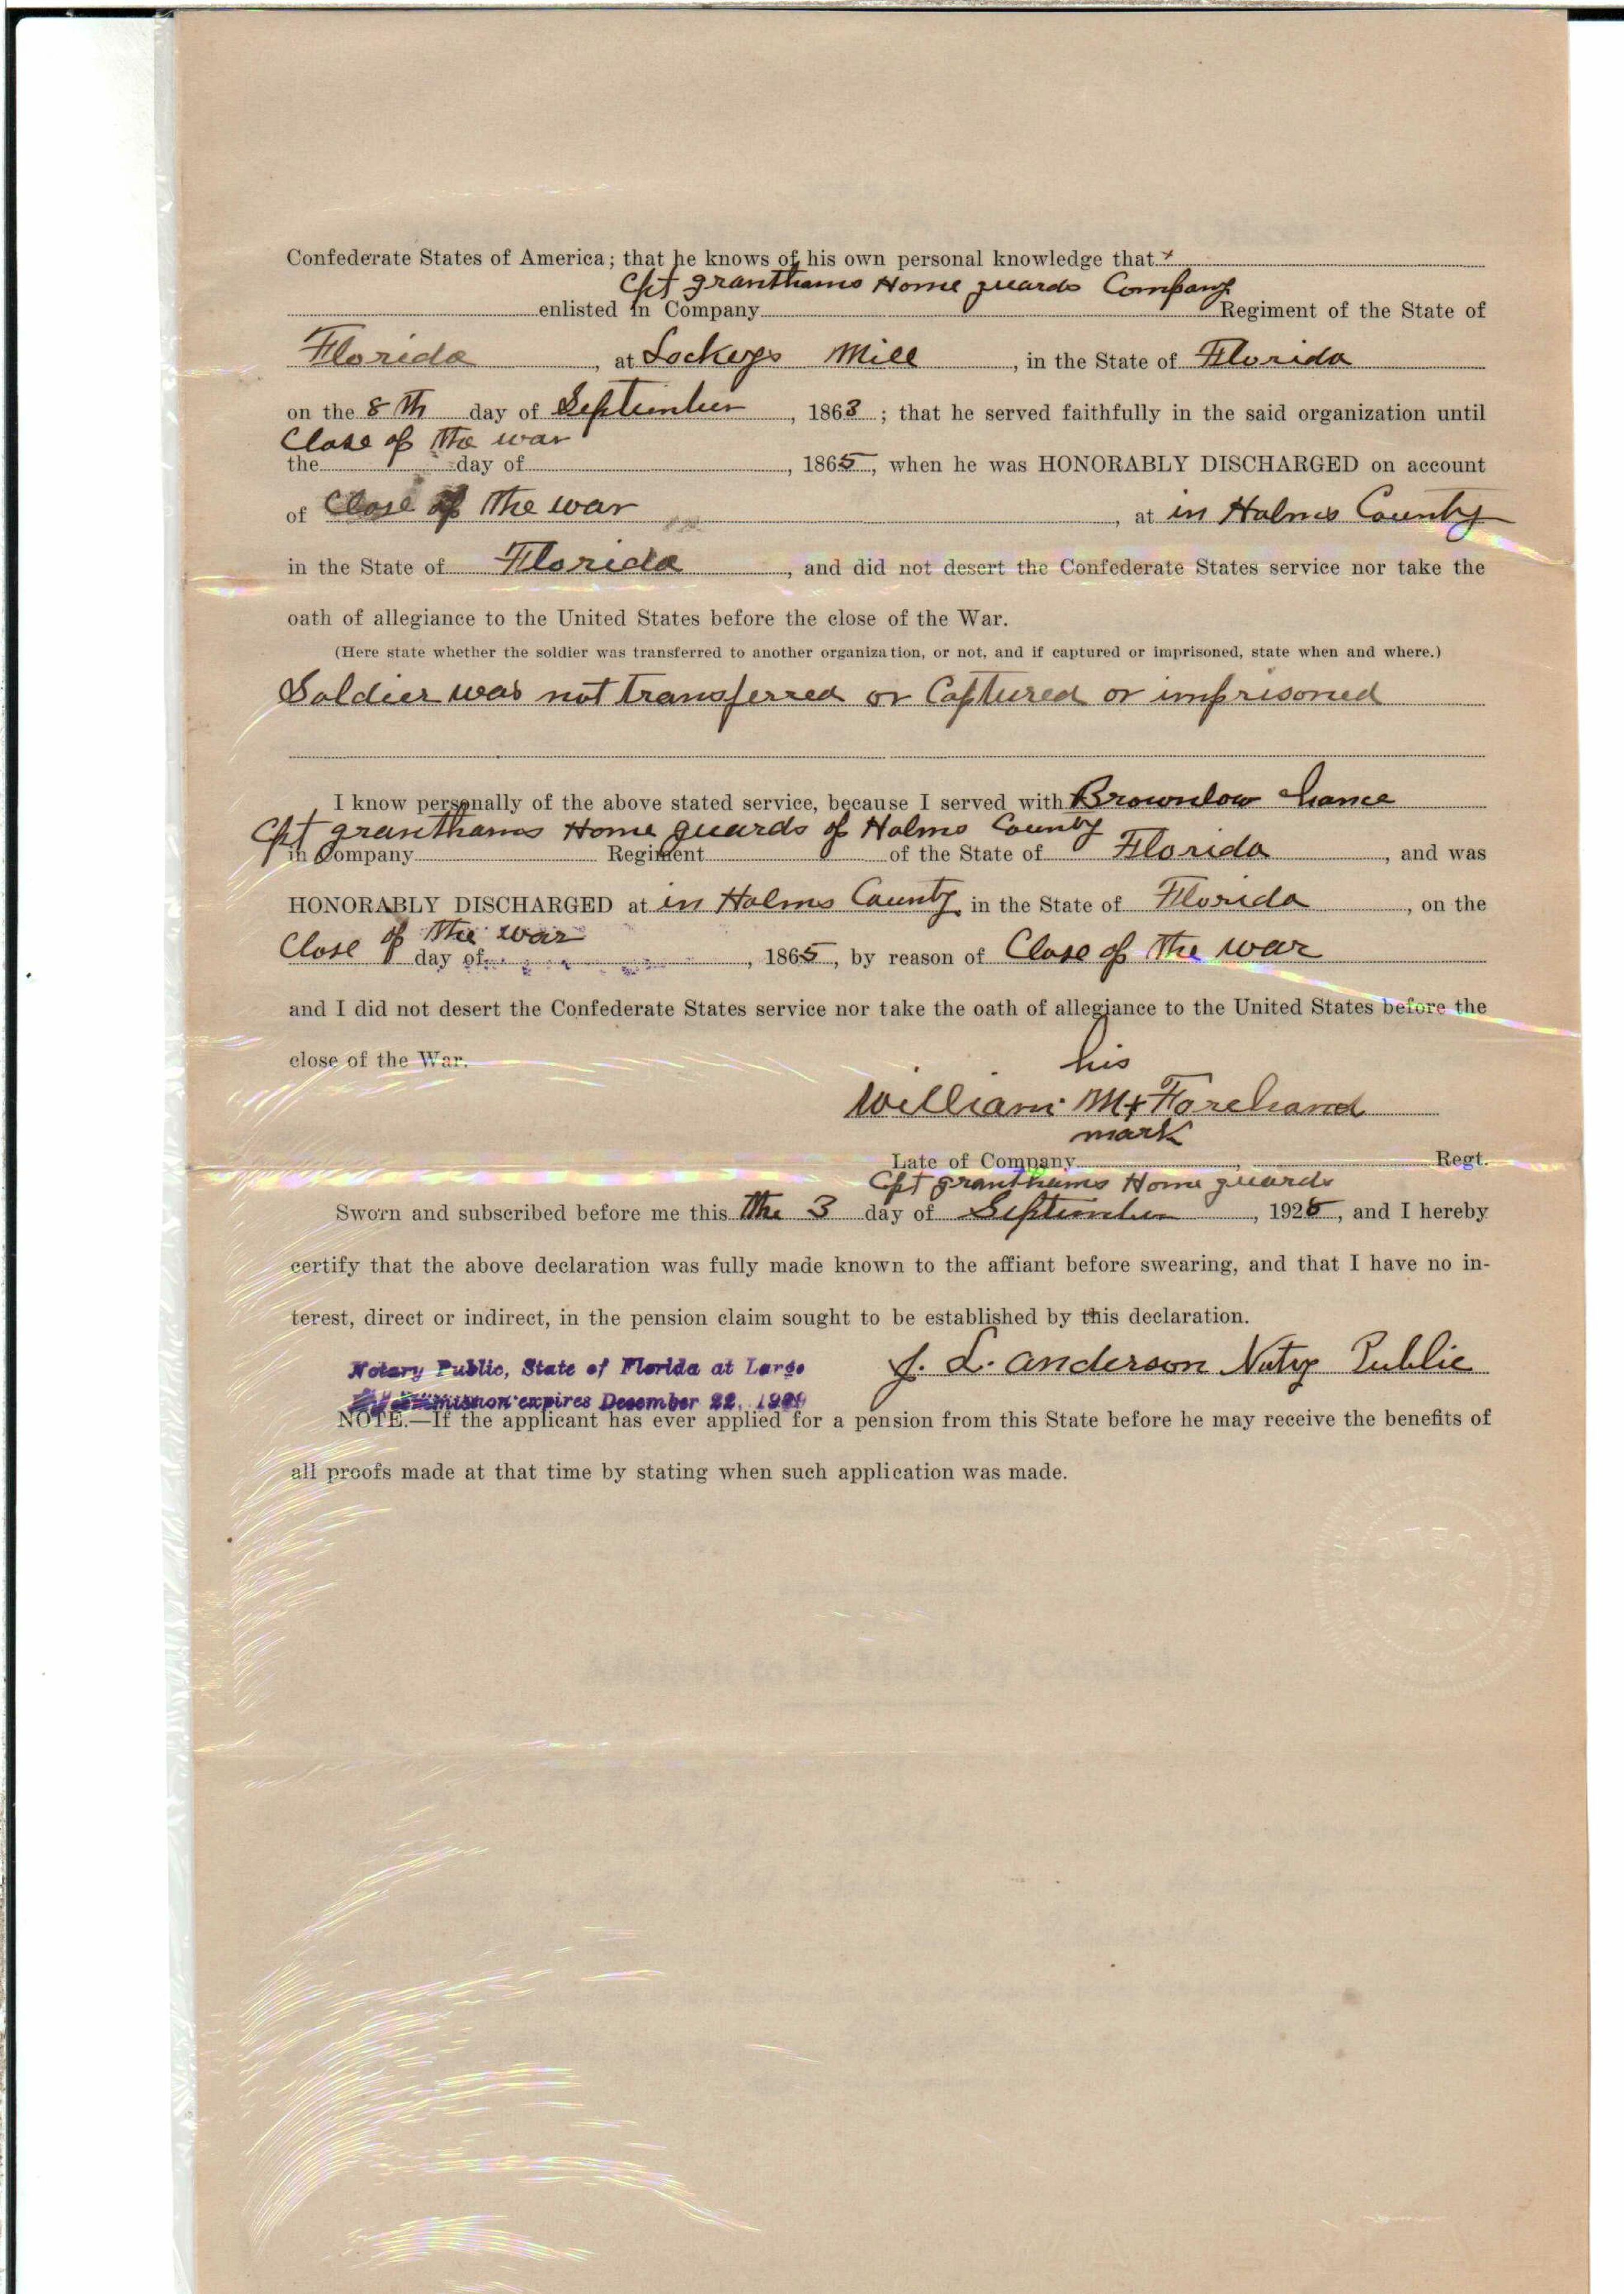 Confederate States of America; that he knows of his own personal knowledge that
Cpt granthams Home guards Company
enlisted in Company Regiment of the State of
Florida, at Lockeys Mill, in the State of Florida
on the 8th day of September, 1863; that he served faithfully in the said organization until
Close of the war
the day of , 1865, when he was HONORABLY DISCHARGED on account
of Close of the war, at in Holms County
in the State of Florida, and did not desert the Confederate States service nor take the
oath of allegiance to the United States before the close of the War.
(Here state whether the soldier was transferred to another organization, or not, and if captured or imprisoned, state when and where.)
Soldier was not transferred or Captured or imprisoned
I know personally of the above stated service, because I served with Brownlow Chance
Cpt granthams Home guards of Holms County
in Company Regiment of the State of Florida, and was
HONORABLY DISCHARGED at in Holms County in the State of Florida, on the
Close of the war
day of , 1865, by reason of Close of the war
and I did not desert the Confederate States service nor take the oath of allegiance to the United States before the
close of the War.
his
William M x Forehand
mark
Late of Company , Regt.
Cpt granthams Home guards
Sworn and subscribed before me this the 3 day of September, 1925, and I hereby
certify that the above declaration was fully made known to the affiant before swearing, and that I have no in-
terest, direct or indirect, in the pension claim sought to be established by this declaration.
Notary Public, State of Florida at Large
J. L. Anderson Notry Public
expires December 22, 192
NOTE.—If the applicant has ever applied for a pension from this State before he may receive the benefits of
all proofs made at that time by stating when such application was made.